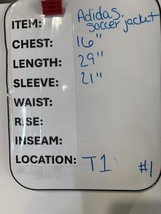 ITEM: Adidas soccer jacket
CHEST: 16"
LENGTH: 29"
SLEEVE: 21"
WAIST:
RISE:
INSEAM:
LOCATION: T1 #1